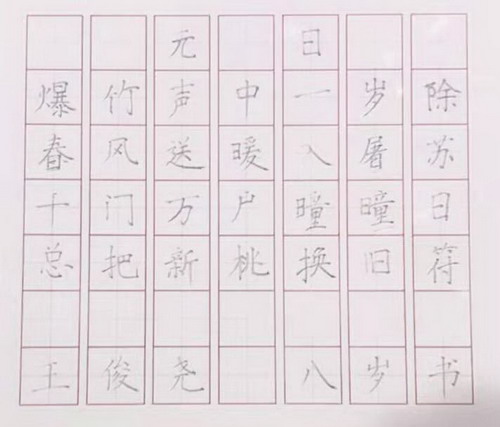 元日
爆竹声中一岁除
春风送暖入屠苏
千门万户曈曈日
总把新桃换旧符
王俊尧 八岁书